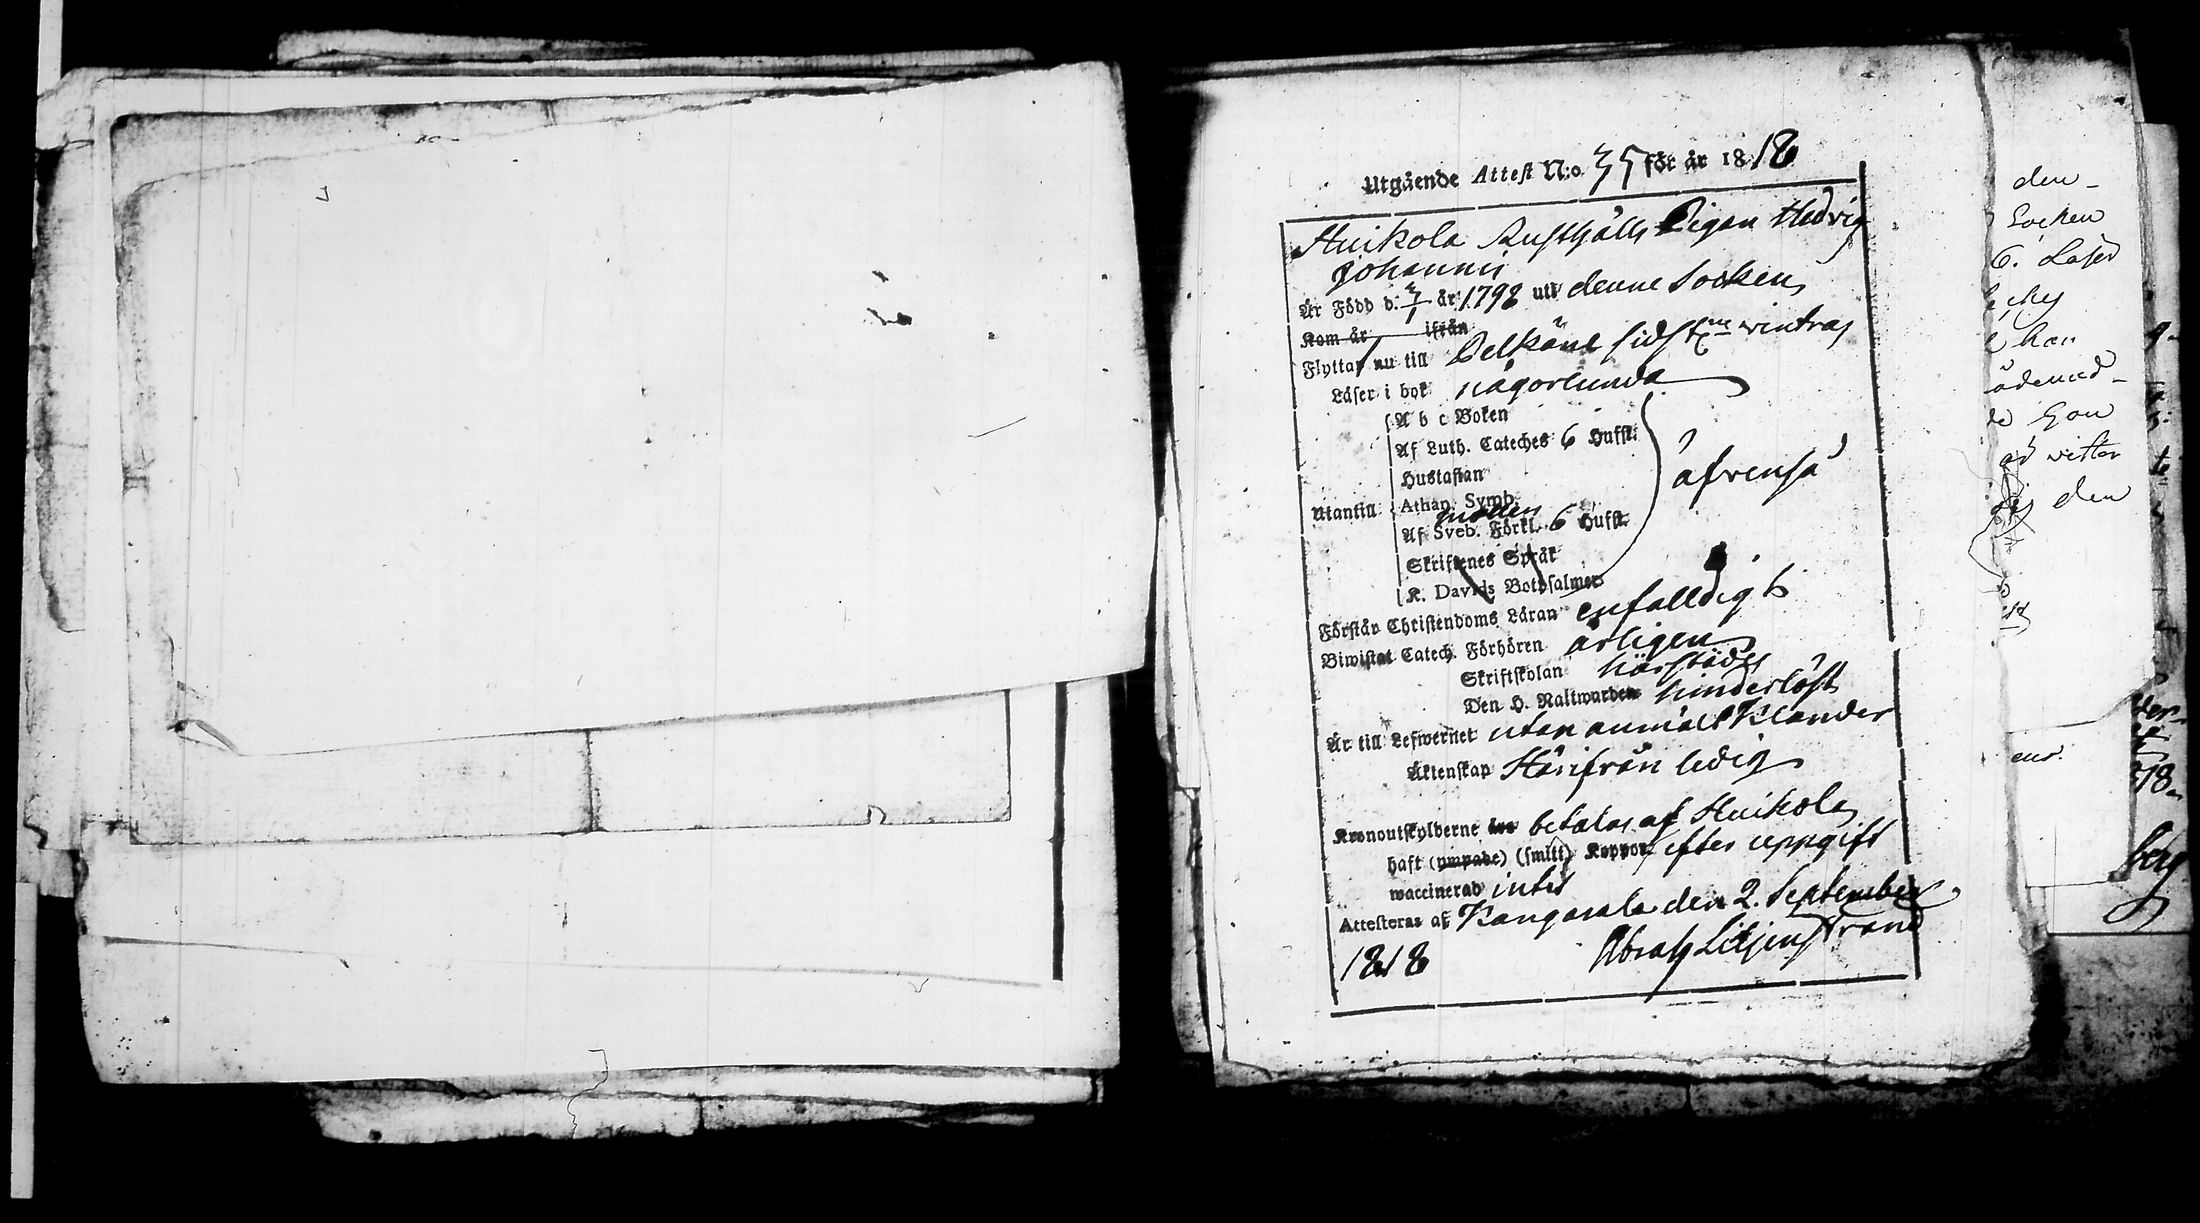 Utgående Attest N:o 35 för år 1818
Huikola Rusthålls Pigan Hedvig
Johanni
Är Född d. 3/1 år 1798 uti denne Socken
Kom år ifrån
Flyttar nu till Pelkäne sidstne wintras
Läser i bok någorlunda
A b c Boken
Af Luth. Cateches 6 Hufst.
Hustaflan
Utantill Athan. Symb.
Af Sveb. Förkl. 6 Hufst.
äfvenså
Skriftenes Språk
K. Davids Botpsalmer
Förstår Christendoms Läran enfalldigt
Biwistat Catech. Förhören årligen
Skriftskolan härstädes
Den H. Nattwarden hinderlöst
Är till Lefwernet utan anmält klander
Äktenskap Härifrån ledig
Kronoutskylderne betalas af Huikola
haft (ympade) (smitt) Koppor efter uppgift
waccinerad intet
Attesteras af Kangasala den 2. September
1818 Abrah Liljenstrand
den
Socken
6. Läser
han
wetter
den